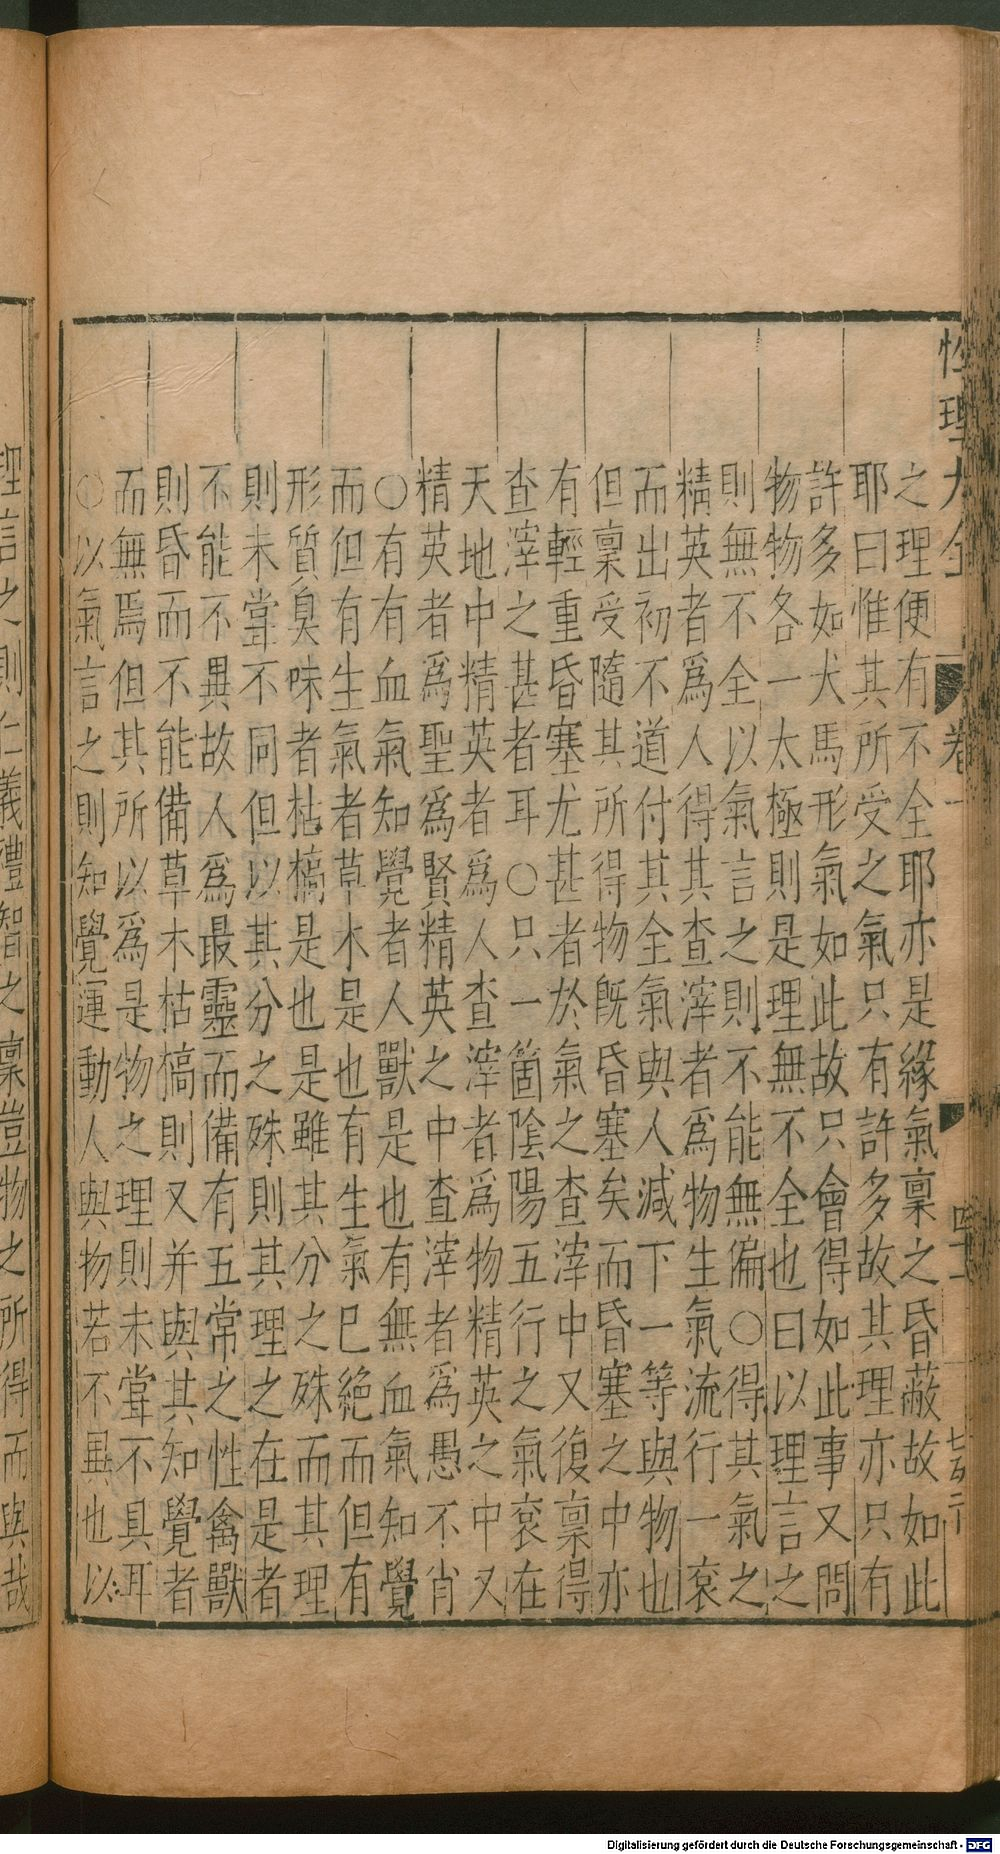 性理大全
卷一
四十一
七百二
之理便有不全耶亦是緣氣稟之昏蔽故如此
耶曰惟其所受之氣只有許多故其理亦只有
許多如犬馬形氣如此故只會得如此事又問
物物各一太極則是理無不全也曰以理言之
則無不全以氣言之則不能無偏○得其氣之
精英者爲人得其查滓者爲物生氣流行一衮
而出初不道付其全氣與人減下一等與物也
但稟受隨其所得物旣昏塞矣而昏塞之中亦
有輕重昏塞尤甚者於氣之查滓中又復稟得
查滓之甚者耳○只一箇陰陽五行之氣衮在
天地中精英者爲人查滓者爲物精英之中又
精英者爲聖爲賢精英之中查滓者爲愚不肖
○有有血氣知覺者人獸是也有無血氣知覺
而但有生氣者草木是也有生氣已絶而但有
形質臭味者枯槁是也是雖其分之殊而其理
則未甞不同但以其分之殊則其理之在是者
不能不異故人爲最靈而備有五常之性禽獸
則昏而不能備草木枯槁則又并與其知覺者
而無焉但其所以爲是物之理則未甞不具耳
○以氣言之則知覺運動人與物若不異也以
理言之則仁義禮智之稟豈物之所得而與哉
Digitalisierung gefördert durch die Deutsche Forschungsgemeinschaft - DFG